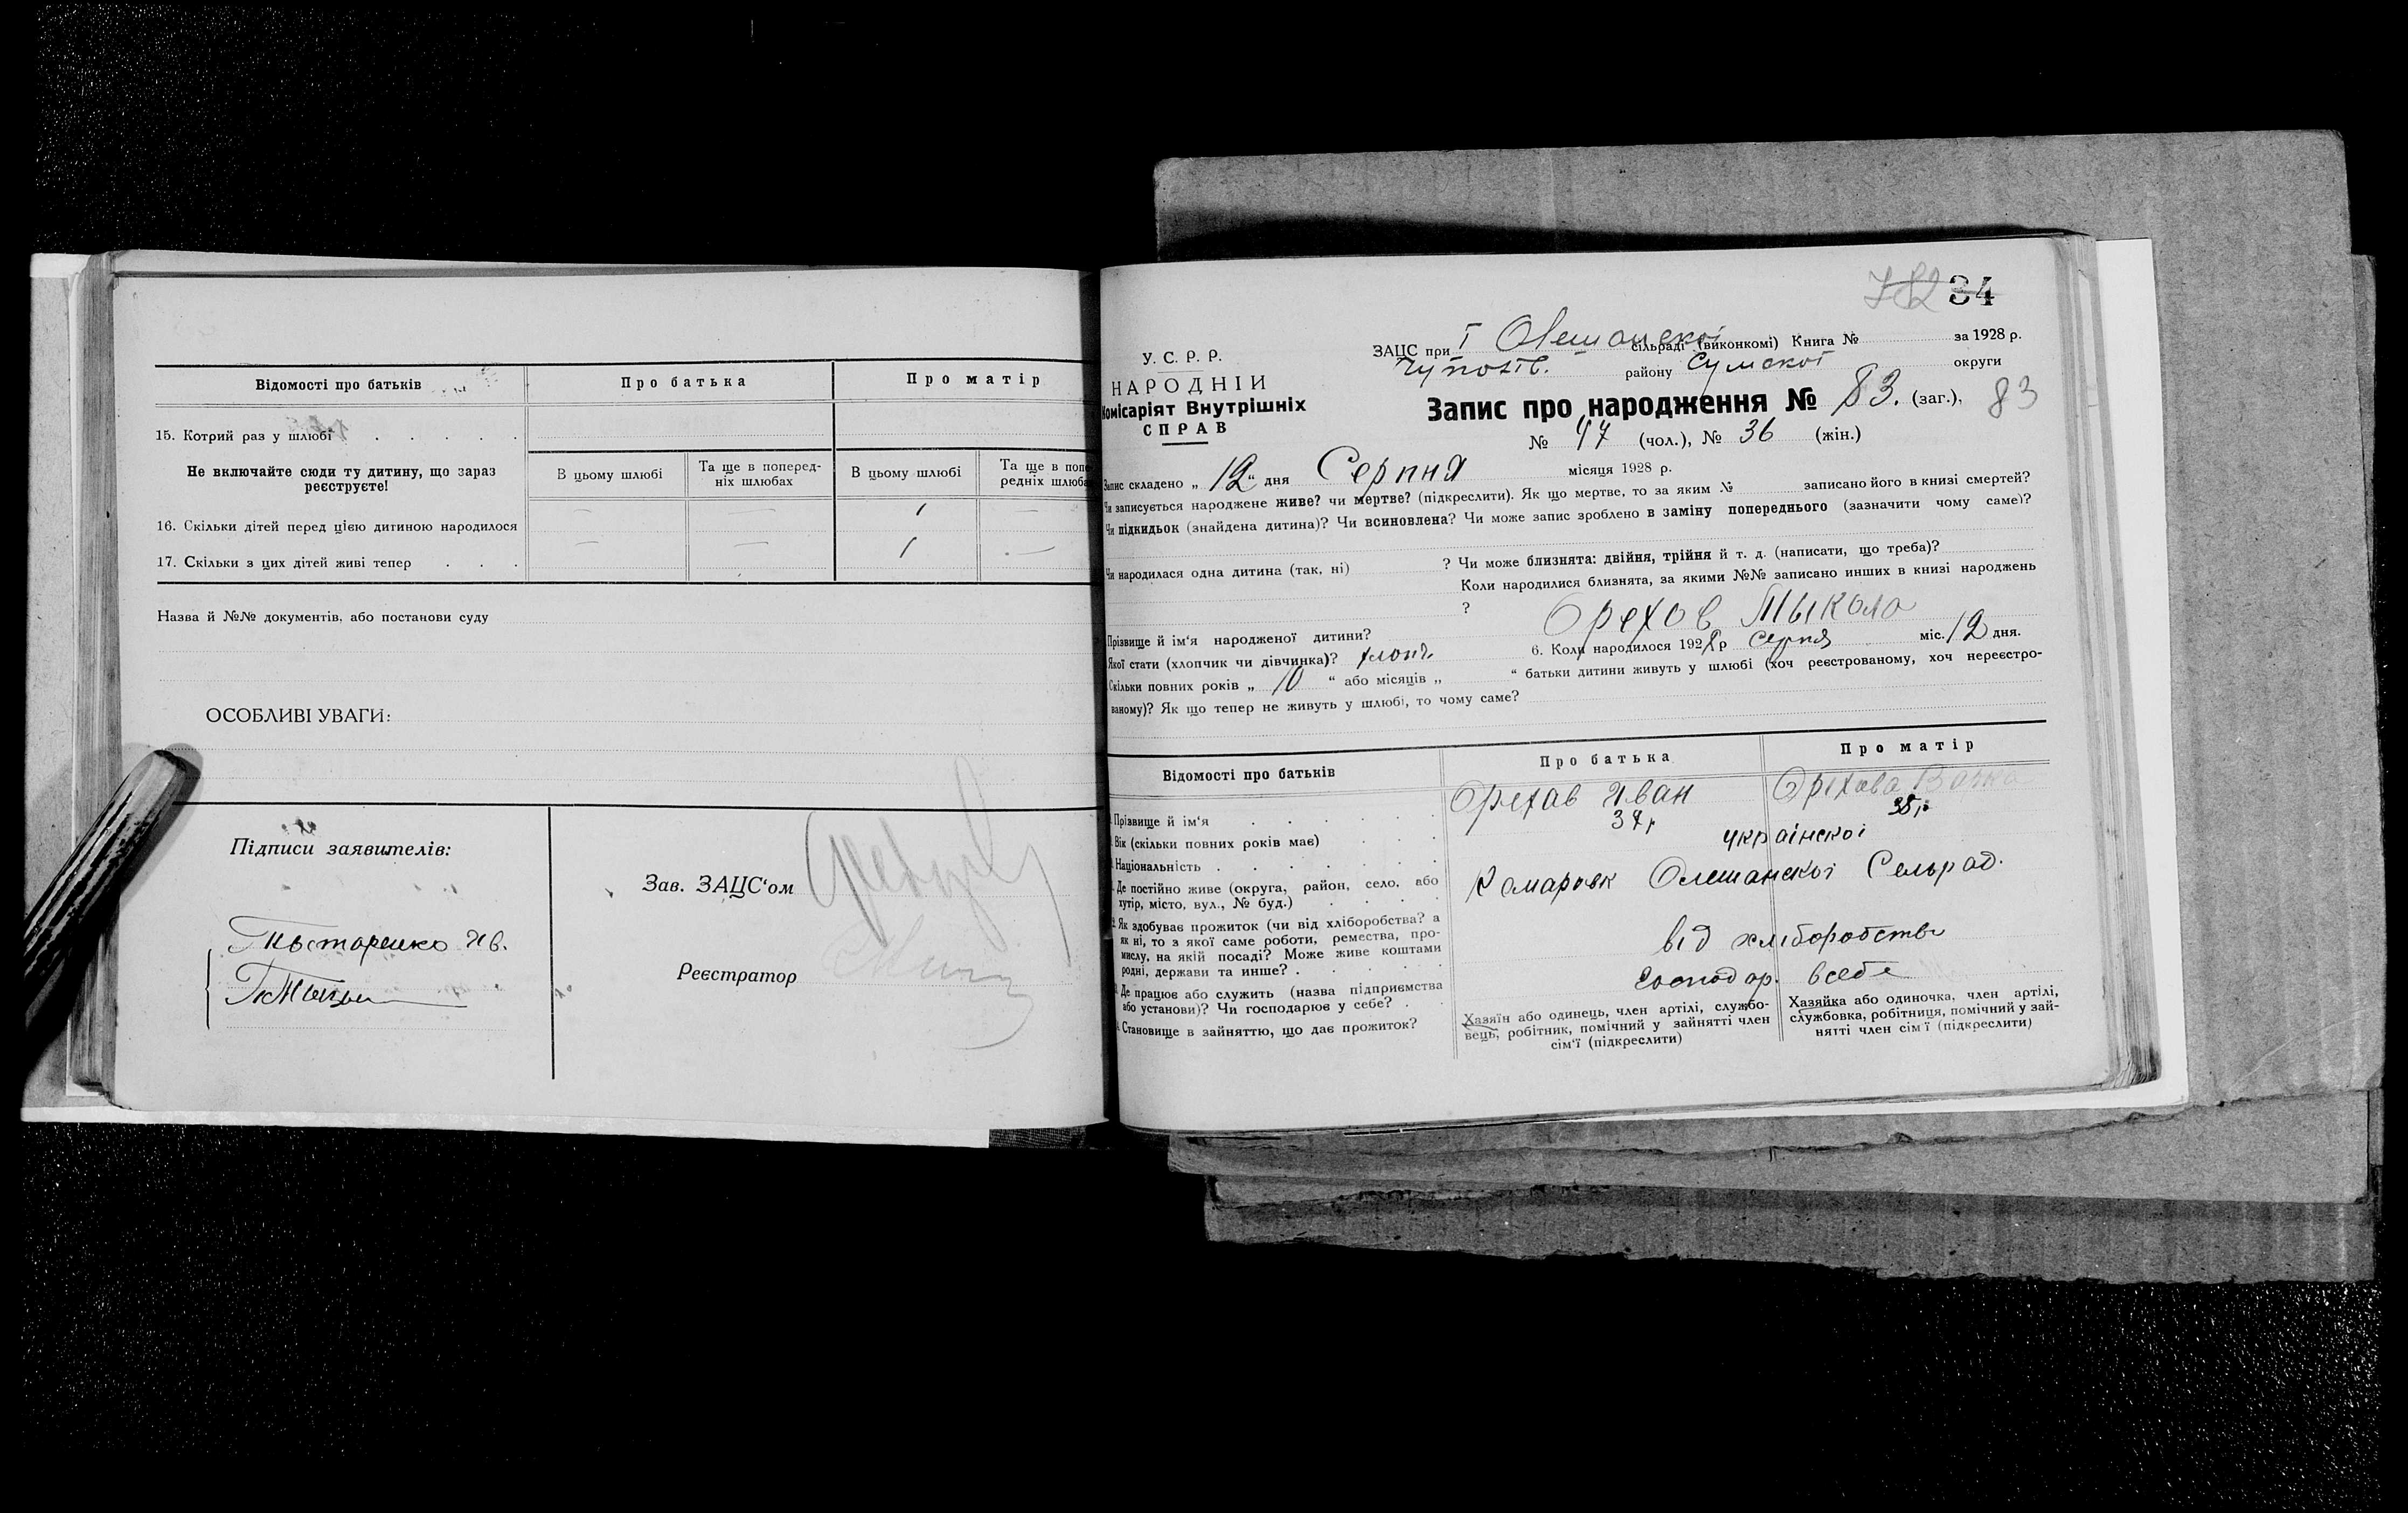 Відомості про батьків
Про батька
Про матір
15. Котрий раз у шлюбі
Не включайте сюди ту дитину, що зараз
реєструєте!
В цьому шлюбі
Та ще в поперед-
ніх шлюбах
В цьому шлюбі
Та ще в попе
редніх шлюба
16. Скільки дітей перед цією дитиною народилося — — 1 —
17. Скільки з цих дітей живі тепер — — 1 —
Назва й №№ документів, або постанови суду
ОСОБЛИВІ УВАГИ:
Підписи заявителів:
Зав. ЗАЦС'ом
Реєстратор
34
У. С. Р. Р.
НАРОДНІЙ
Комісаріят Внутрішніх
СПРАВ
ЗАЦС при І Олешанскої сільраді (виконкомі) Книга № за 1928 р.
району Сумскої округи
Запис про народження № 83. (заг.), 83
№ 47 (чол.), № 36 (жін.)
Запис складено „ 12 “ дня Серпня місяця 1928 р.
Чи записується народжене живе? чи мертве? (підкреслити). Як що мертве, то за яким № записано його в книзі смертей?
Чи підкидьок (знайдена дитина)? Чи всиновлена? Чи може запис зроблено в заміну попереднього (зазначити чому саме)?
Чи народилася одна дитина (так, ні) ? Чи може близнята: двійня, трійня й т. д. (написати, що треба)?
Коли народилися близнята, за якими №№ записано инших в книзі народжень
?
Прізвище й ім'я народженої дитини? Орехов Мыкола
Якої стати (хлопчик чи дівчинка)? хлопч. 6. Коли народилося 1928 р Серпня міс. 12 дня.
Скільки повних років „ 10 “ або місяців „ “ батьки дитини живуть у шлюбі (хоч реєстрованому, хоч нереєстро-
ваному)? Як що тепер не живуть у шлюбі, то чому саме?
Відомості про батьків
Про батька
Про матір
Прізвище й ім'я Орехав Иван Орехова
Вік (скільки повних років має) 37 р 38 р
Національність української
Де постійно живе (округа, район, село, або
хутір, місто, вул., № буд.) Олешанскої Сельрад.
Як здобуває прожиток (чи від хліборобства? а
як ні, то з якої саме роботи, ремества, про-
мислу, на якій посаді? Може живе коштами
родні, держави та инше? від хліборобства
Де працює або служить (назва підприємства
або установи)? Чи господарює у себе? Господар. всебе
Становище в зайняттю, що дає прожиток?
Хазяїн або одинець, член артілі, службо-
вець, робітник, помічний у зайнятті член
сім'ї (підкреслити)
Хазяйка або одиночка, член артілі,
службовка, робітниця, помічний у зай-
нятті член сім'ї (підкреслити)